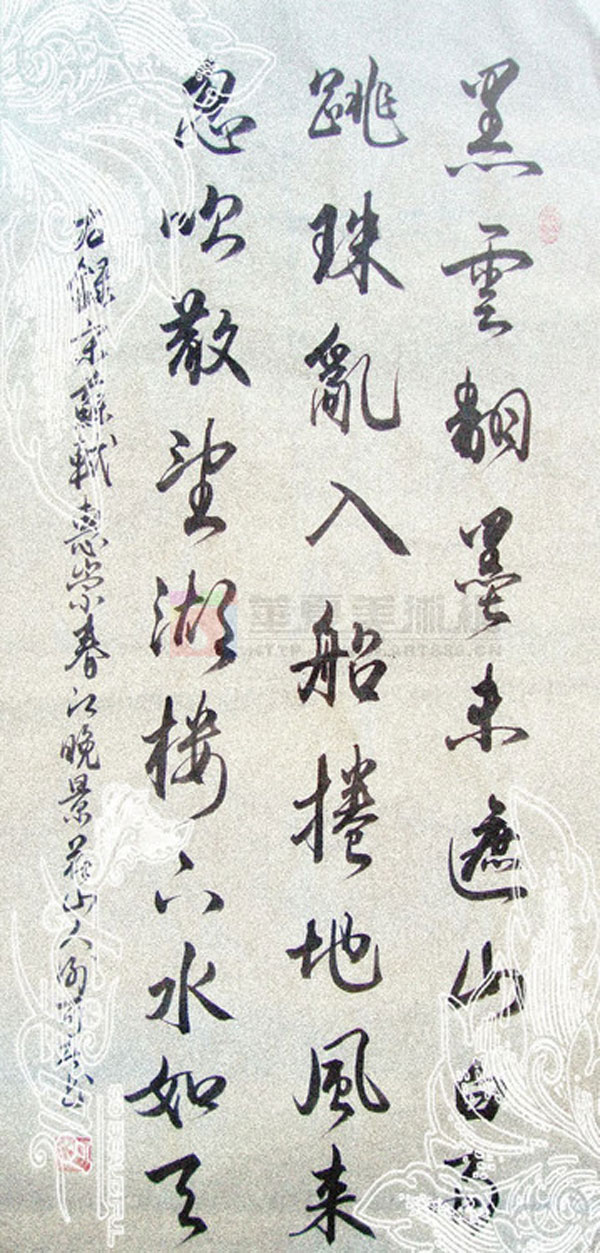 黑雲翻墨未遮山白雨
跳珠亂入船捲地風来
忽吹散望湖樓下水如天
右錄宋蘇軾惠崇春江晚景山人書
華夏美術網